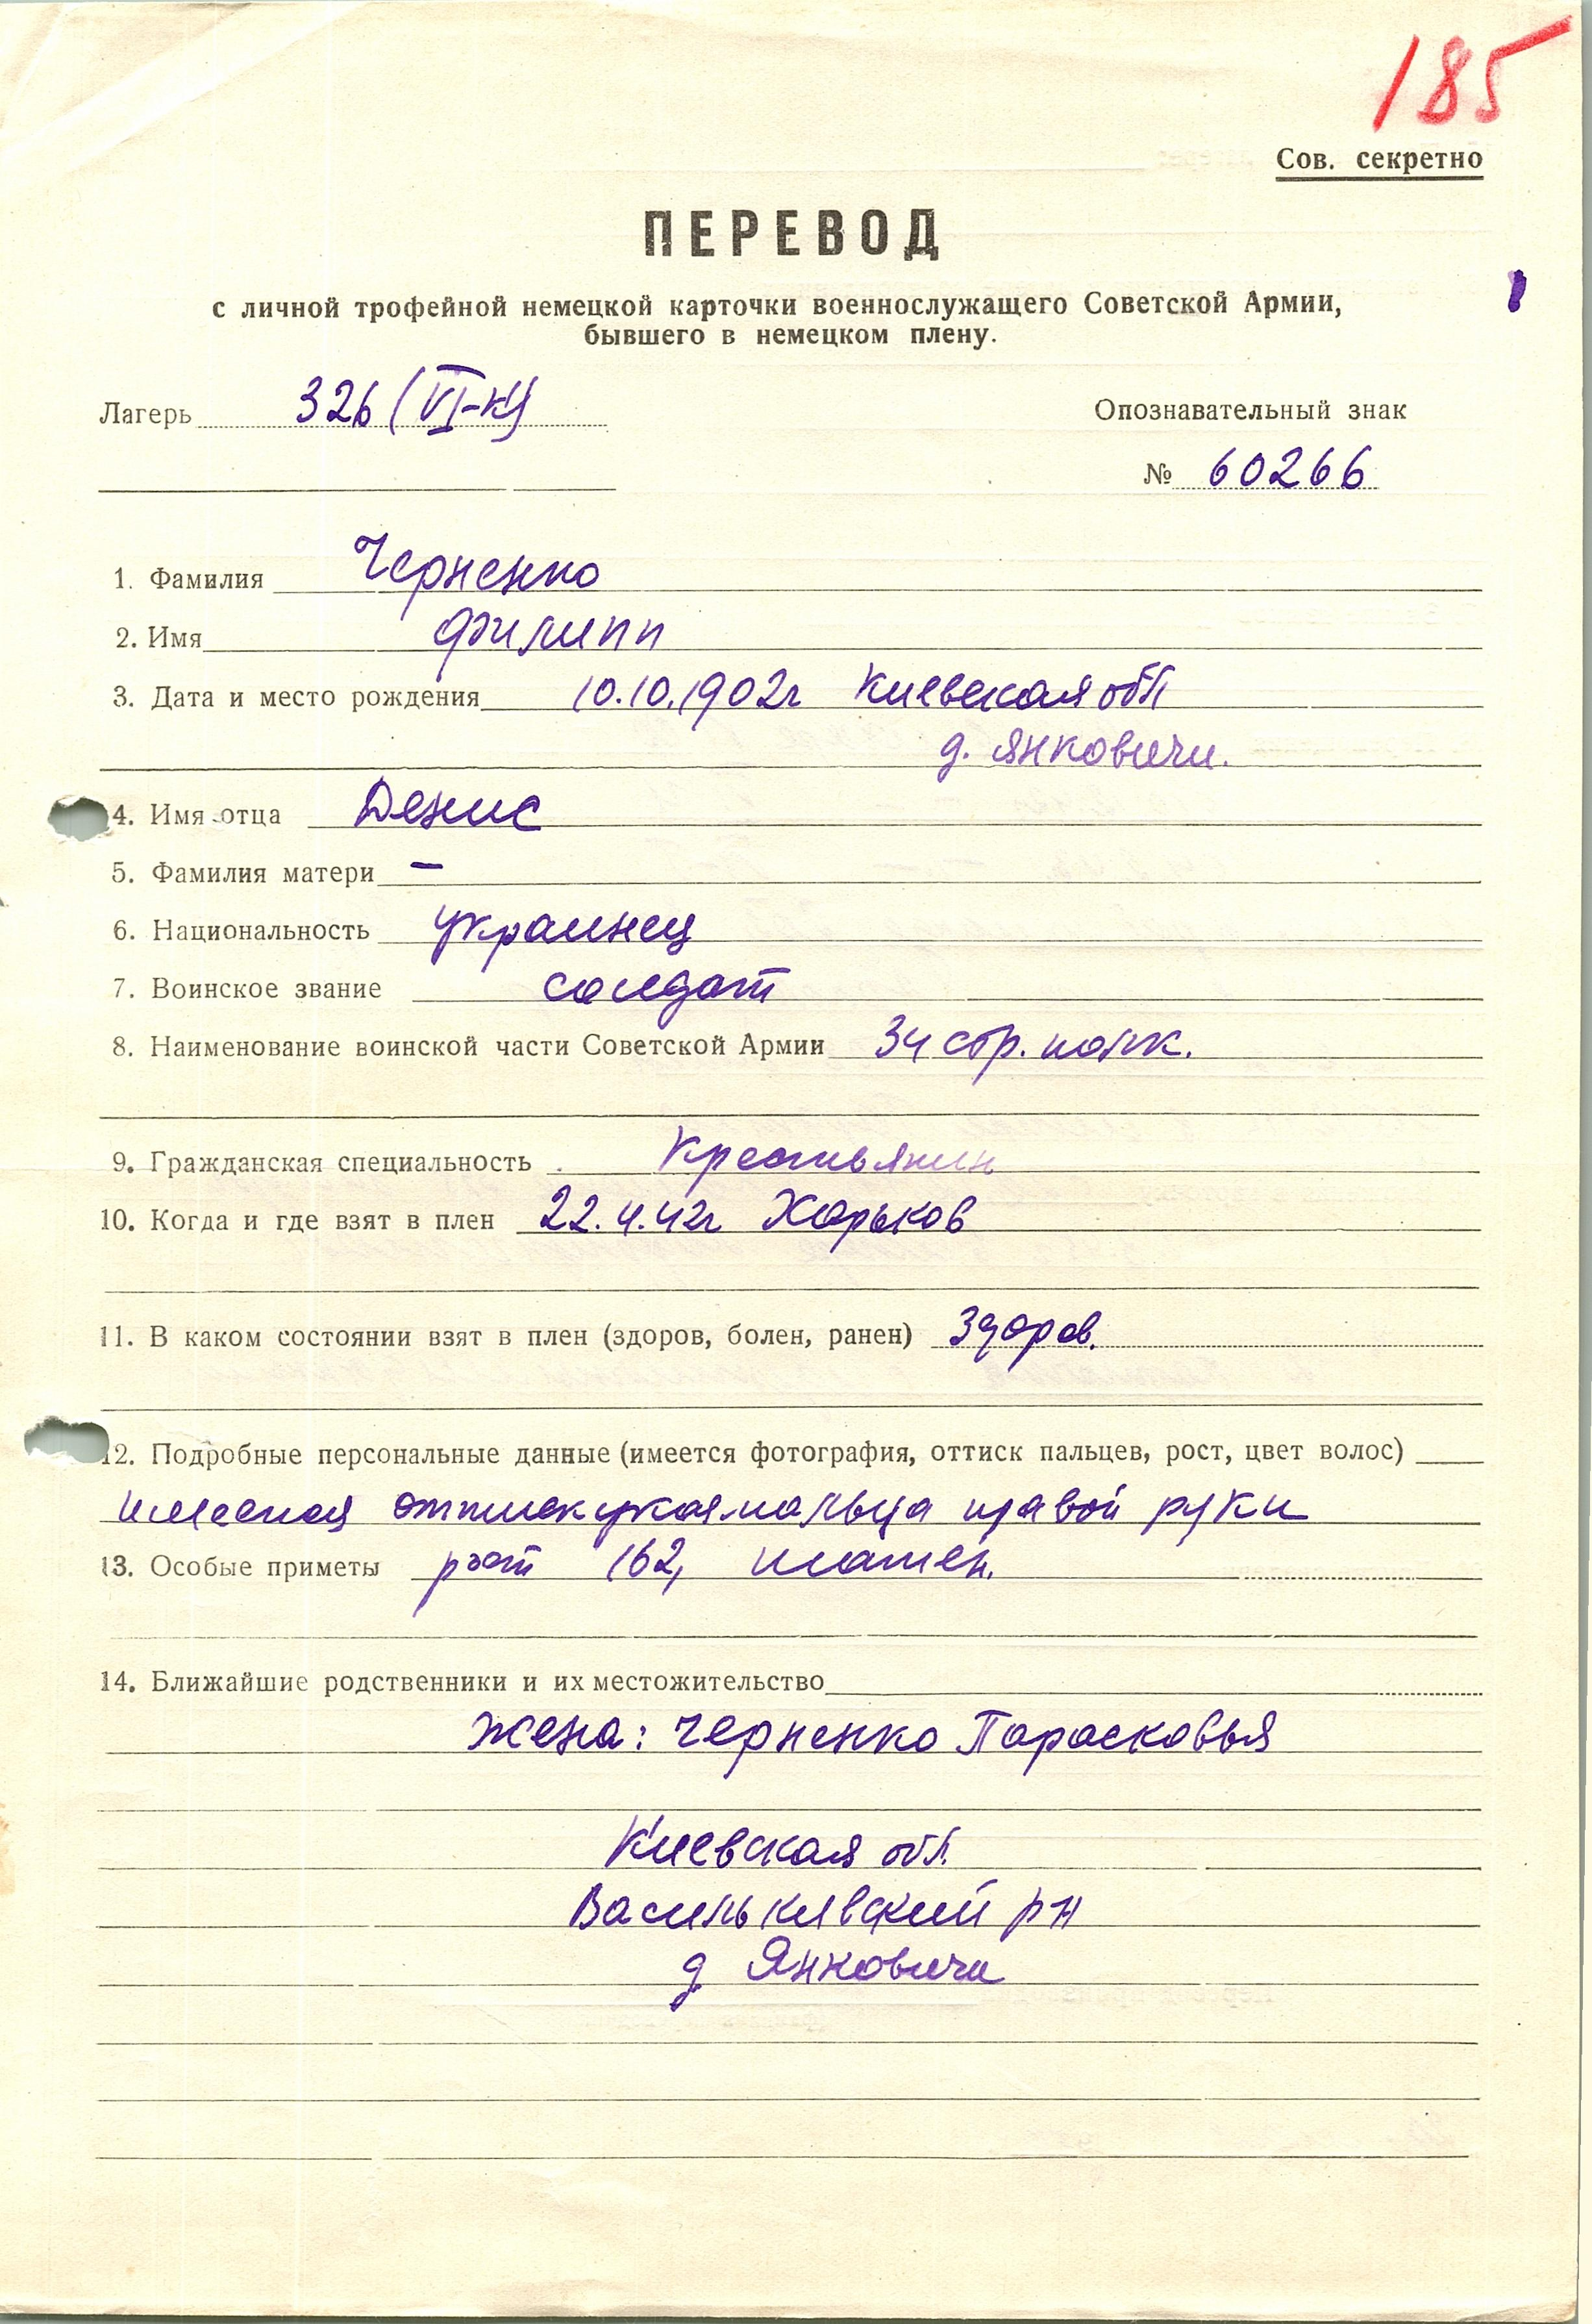 185
Сов. секретно
ПЕРЕВОД
с личной трофейной немецкой карточки военнослужащего Советской Армии,
бывшего в немецком плену.
Лагерь 326 (VI-К)
Опознавательный знак
№ 60266
1. Фамилия Черненко
2. Имя Филипп
3. Дата и место рождения 10.10.1902г Киевская обл
д. Янковичи.
4. Имя отца Денис
5. Фамилия матери —
6. Национальность украинец
7. Воинское звание солдат
8. Наименование воинской части Советской Армии 34 стр. полк.
9. Гражданская специальность Крестьянин
10. Когда и где взят в плен 22.4.42г Харьков
11. В каком состоянии взят в плен (здоров, болен, ранен) Здоров.
12. Подробные персональные данные (имеется фотография, оттиск пальцев, рост, цвет волос)
имеется оттиск указ. пальца правой руки
13. Особые приметы рост 162,
14. Ближайшие родственники и их местожительство
Жена: Черненко Парасковья
Киевская обл.
Васильківский рн
д Янковичи